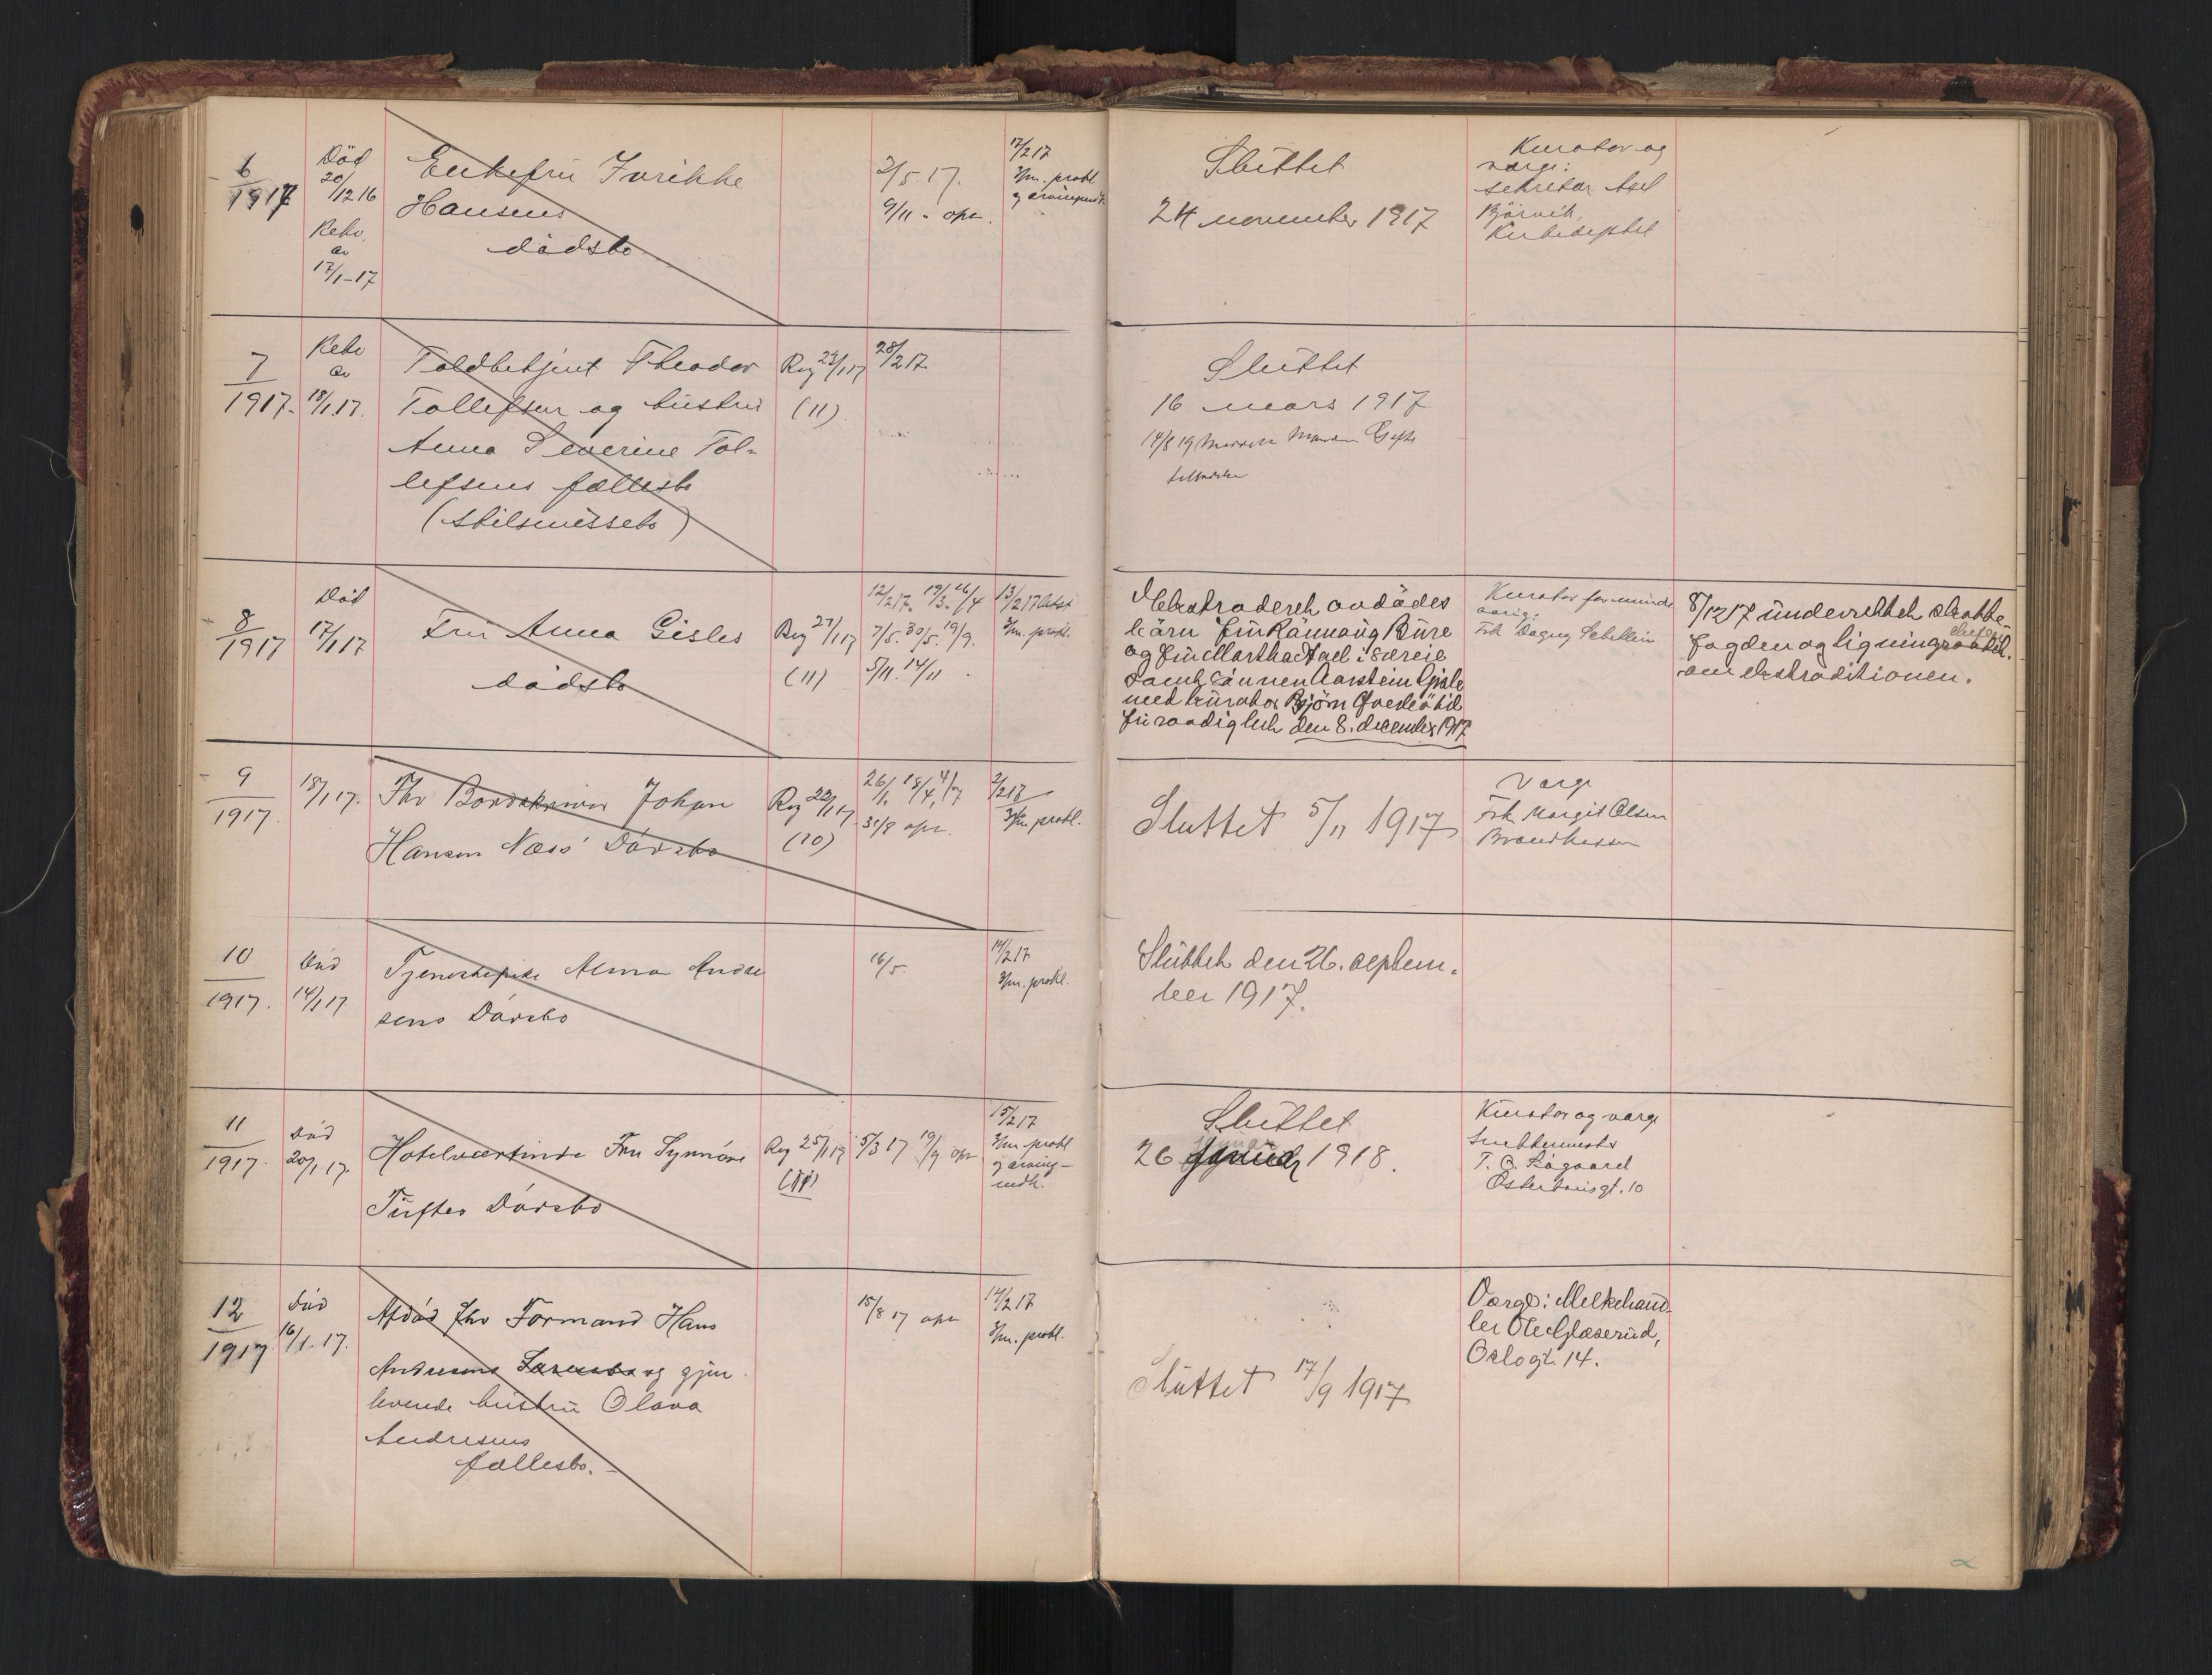 6
1917
Död
20/12 16
Rekv.
av
17/1-17
Enkefru Inrikke
Hansens
dödsbo
2/5. 17.
9/11 " opr.
17/2 17
3/m. prokl.
og arvingindk.
Sluttet
24 november 1917
Kurator og
værge:
sekretær Axel
Björvik,
Kirkedeptet
7
1917.
Rekv
av
18/1 17.
Toldbetjent Theodor
Tollefsen og hustru
Anna Severine Tol-
lefsens fællesbo
(skilsmissebo)
Reg 23/1 17
(11).
28/2 17
Sluttet
16 mars 1917
14/8 19
8
1917
Död
17/1 17
Fru Anna Gisles
dödsbo
Reg 27/1 17
(11)
12/2 17. 19/3. 26/4
7/5. 30/5. 19/9.
5/11. 14/11.
13/2 17
3/m. prokl.
Ekstraderet avdödes
börn fru Rannaug Bure
og fru Martha Stael i særeie
samt sönnen Aarstein Gisle
med kurator Björn
fuldmægtig den 8. december 1917
Kurator for minde
aarig:
Frk Dagny Sebellin
8/12 17 underrettet skatte-
fogden og ligningschefen
om ekstraditionen.
9
1917.
18/1 17.
Fhv Bordskriver Johan
Hansen Næss' Dödsbo
Reg 22/1 17
(10)
26/1. 18/4, 4/7
31/8 opr.
2/2 17
3/m prokl.
Sluttet 5/11 1917
Værge
Frk Margit Olsen
Brandkassen
10
1917.
Död
14/1 17
Tjenestepike Alma Andre
sens Dödsbo
16/5.
14/2 17
3/m. prokl.
Sluttet den 26. septem-
ber 1917.
11
1917.
Död
20/1 17.
Hotelværtinde Fru Synnöve
Tuftes Dödsbo
Reg 25/1 17
(11)
5/3 17 19/9 opr
15/2 17
3/m prokl
og arving-
indk.
Sluttet
26 1918.
Kurator og værge
T. O. Lögaard
Osterhausgt. 10
12
1917
Död
16/1. 17.
Afdöd fhv Formand Hans
Andresens og gjen-
levende hustru Olava
Andresens
fællesbo.
15/8 17 opr
14/2 17
3/m. prokl.
Sluttet 17/9 1917
Værge: Melkehand-
ler Ole Glaserud,
Oslogt. 14.